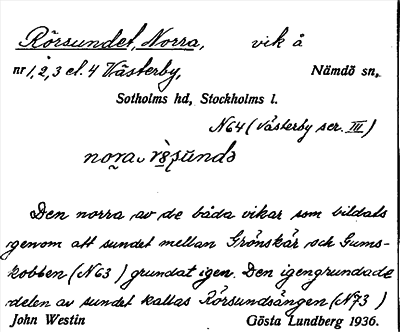 Rörsundet, Norra, vik å
nr 1, 2, 3 el. 4 Västerby, Nämdö sn,
Sotholms hd, Stockholms l.
N64 (Västerby ser. III)
nora rö̀ṣundə
Den norra av de båda vikar som bildats
genom att sundet mellan Grönskär och Gums-
kobben (N63) grundat igen. Den igengrundade
delen av sundet kallas Rörsundsängen (N73)
John Westin Gösta Lundberg 1936.